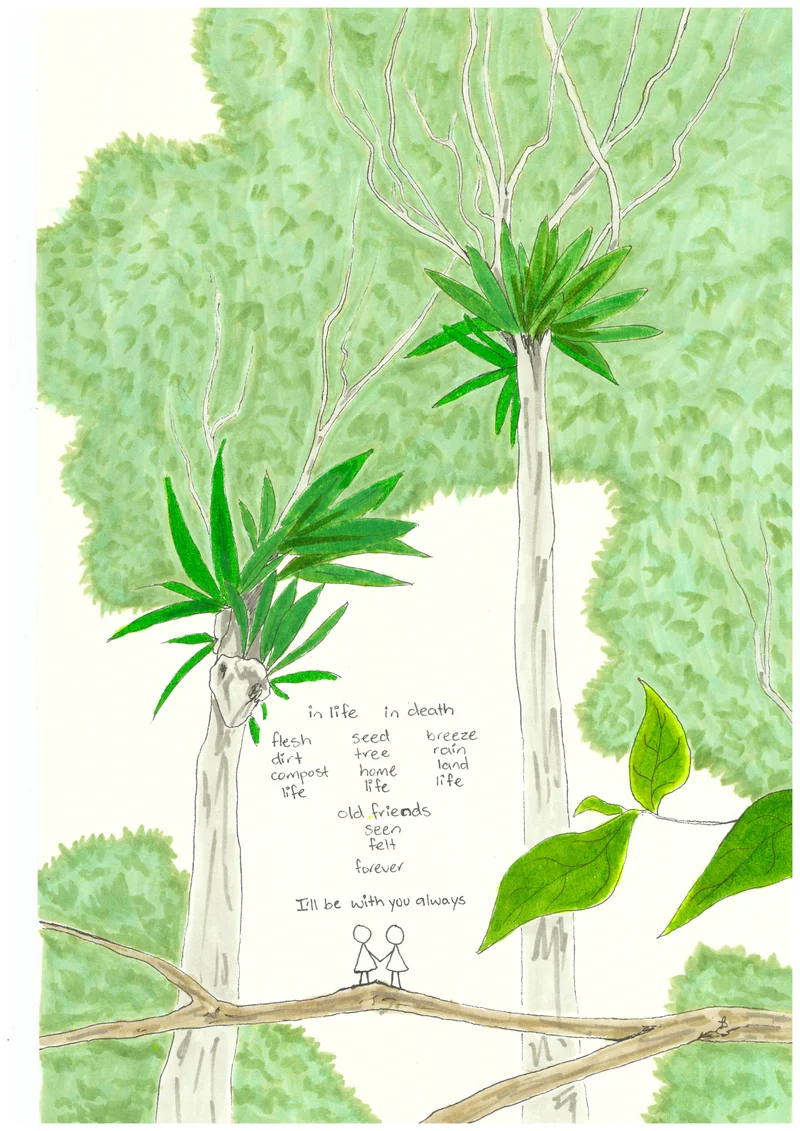 in life in death
flesh seed breeze
dirt tree rain
compost home land
life life life
old friends
seen
felt
forever
I'll be with you always